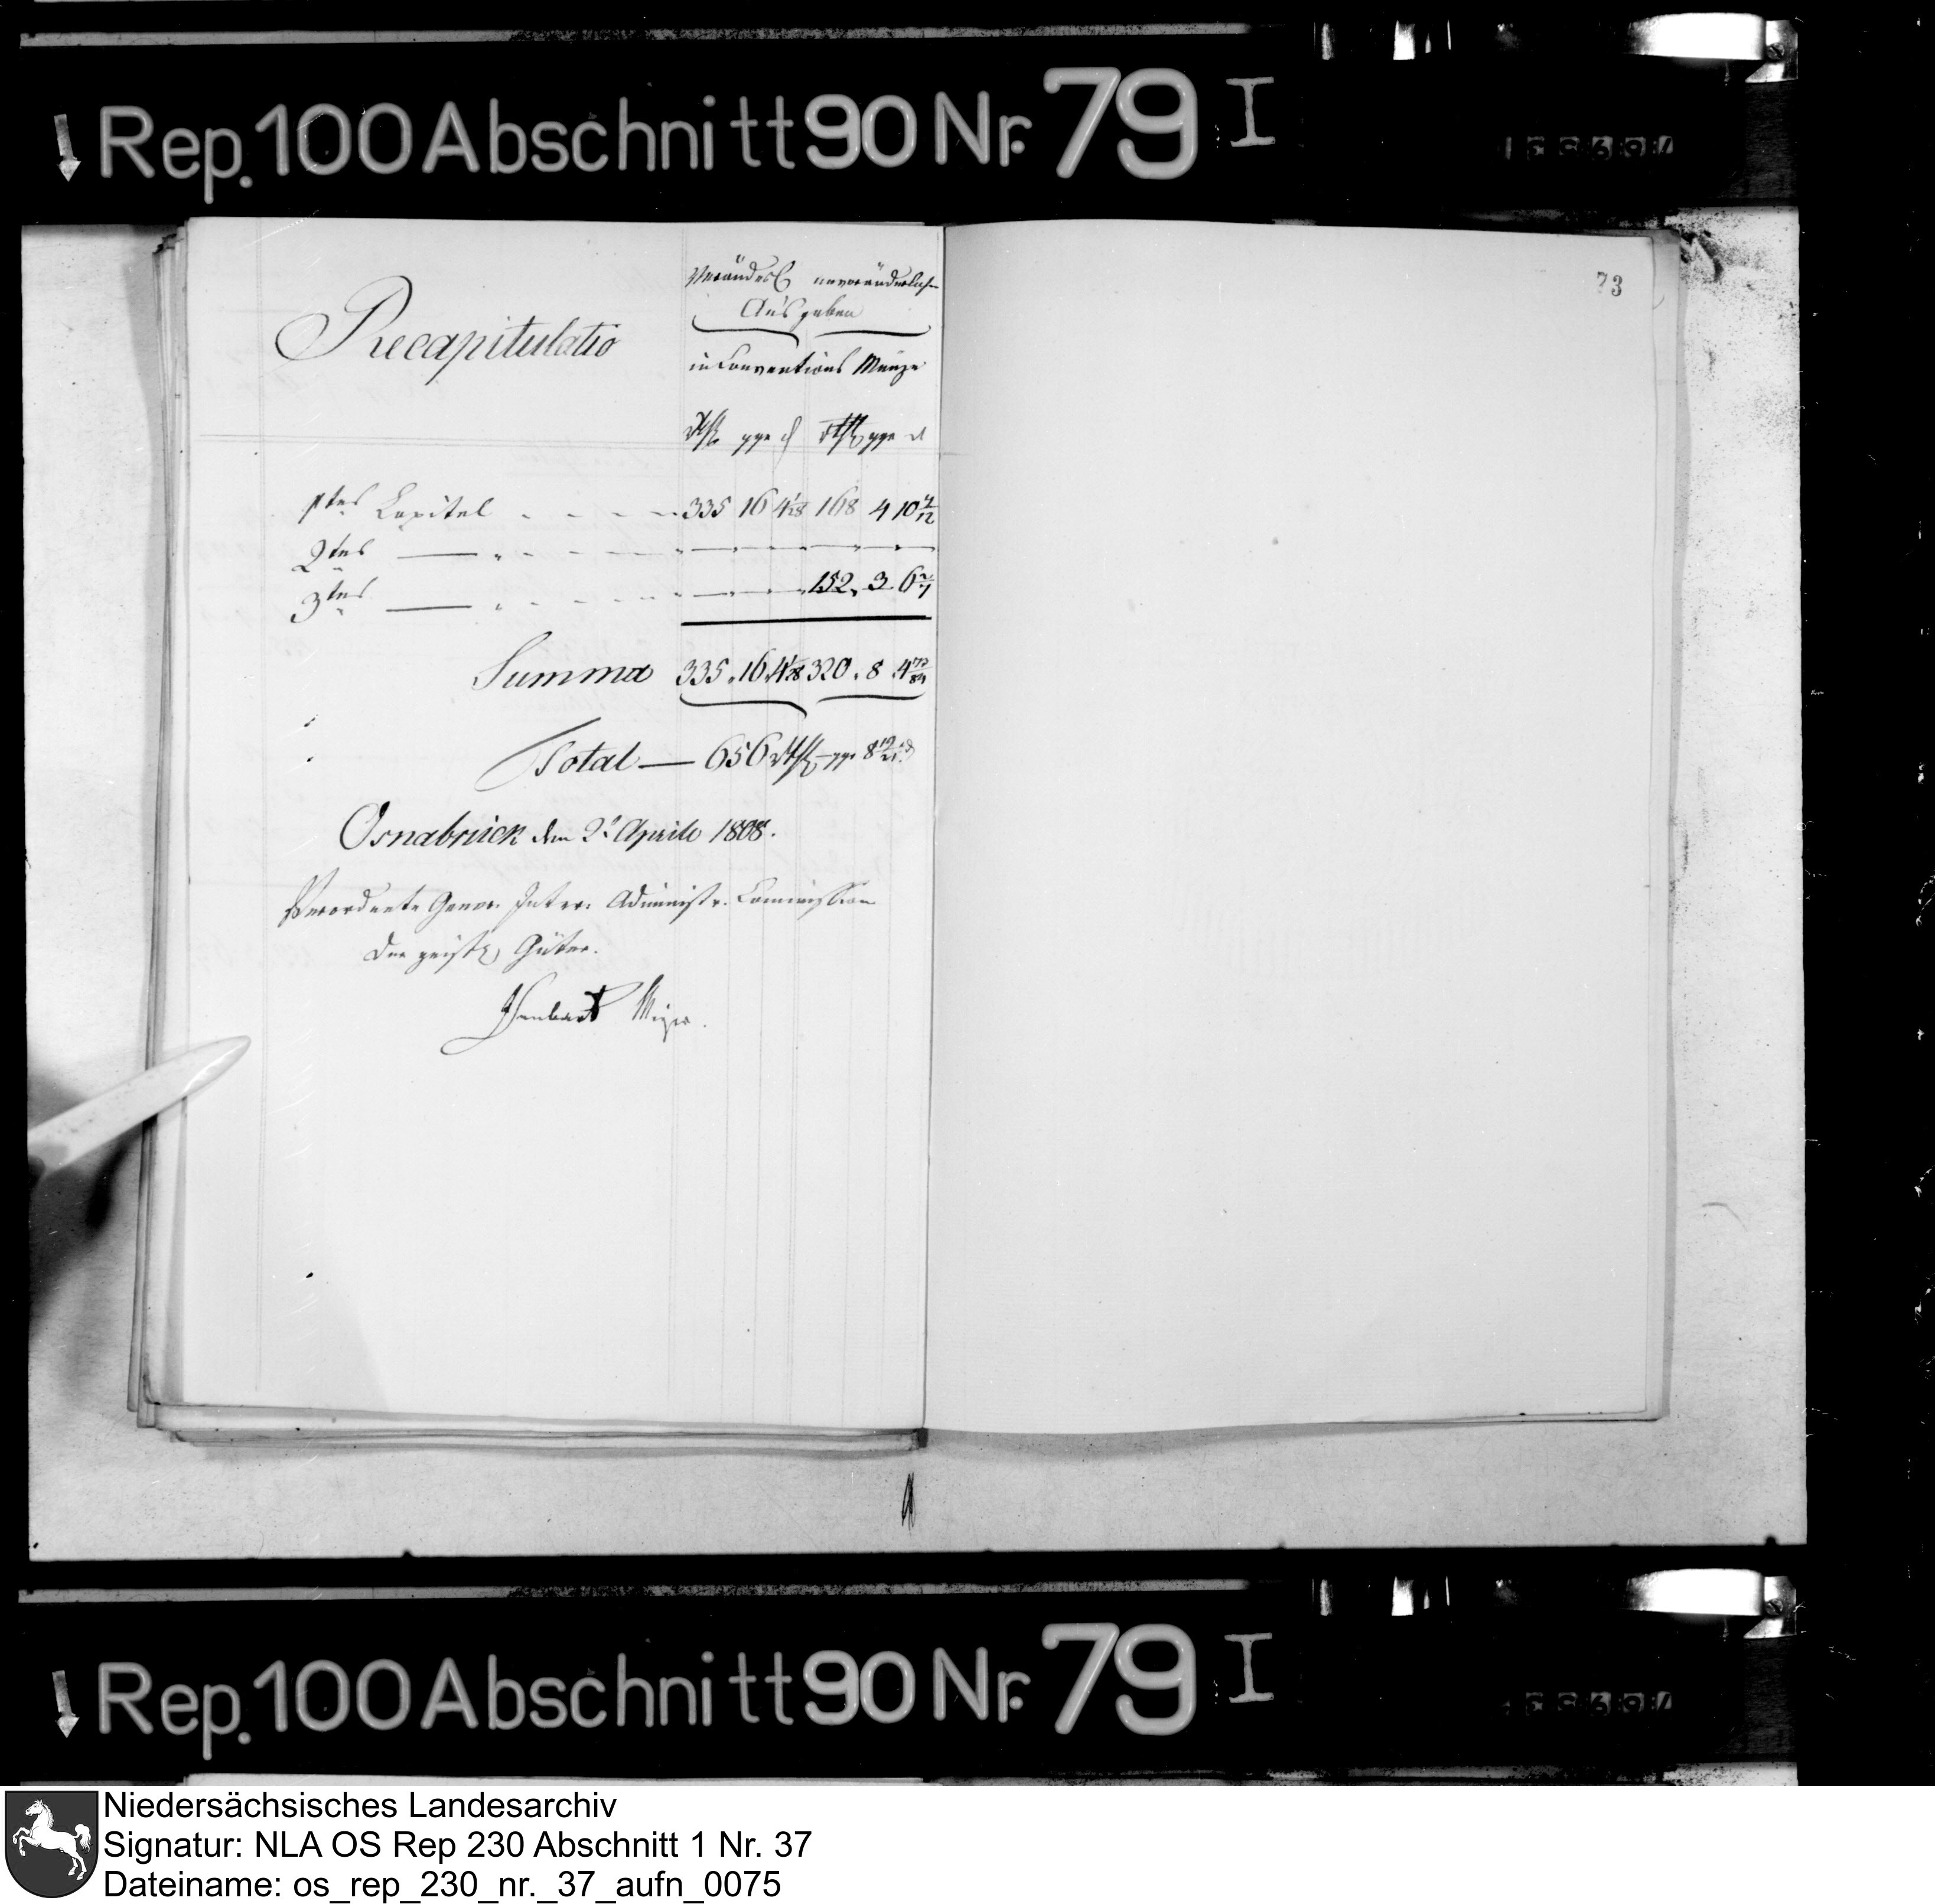 Rep. 100 Abschnitt 90 Nr. 79 I
73
Veränderl. unveränderliche
Ausgaben
Recapitulatio
in Conventions Münze
Rthl ggr d Rthl ggr d
1tes Capitel 335 16 4 1/28 168 4 10 7/12
2tes —
3tes — 152. 3. 6 2/7
Summa 335. 16. 4 1/28 320. 8. 4 73/84
Total — 656 Rthl — ggr 8 19/21 d
Osnabrück den 2t Aprile 1808.
Verordnete Gener. Inter. Administr. Commission
der geistl. Güter.
Meyer.
Rep. 100 Abschnitt 90 Nr. 79 I
Niedersächsisches Landesarchiv
Signatur: NLA OS Rep 230 Abschnitt 1 Nr. 37
Dateiname: os_rep_230_nr._37_aufn_0075